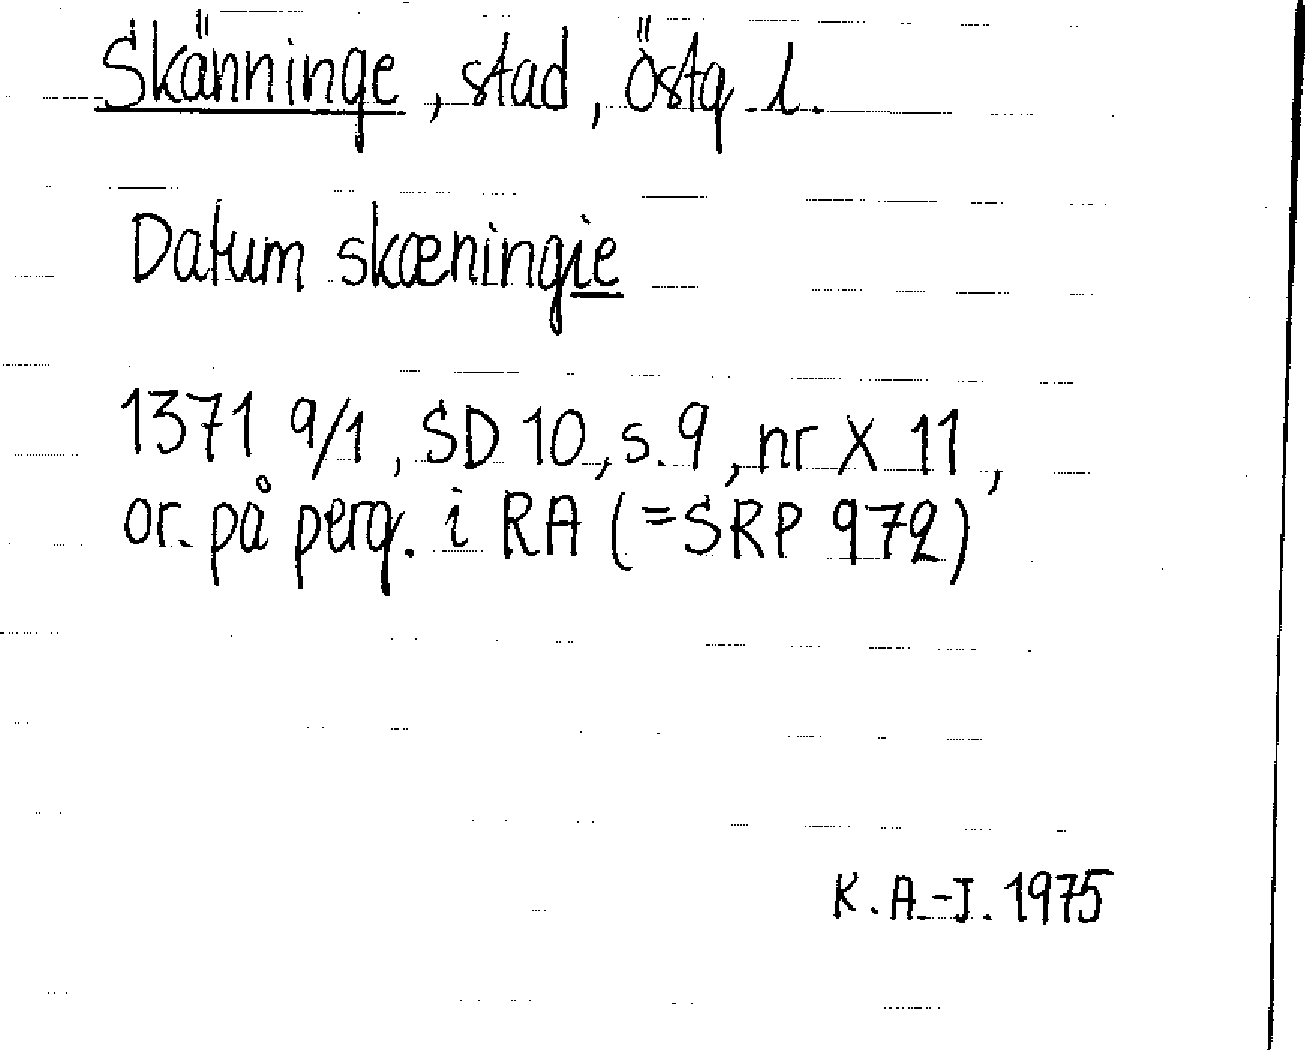 Skänninge, stad, Östg. l.
Datum skæningie
1371 9/1, SD 10, s. 9, nr X 11,
or. på perg. i RA (=SRP 972)
K. A.-J. 1975